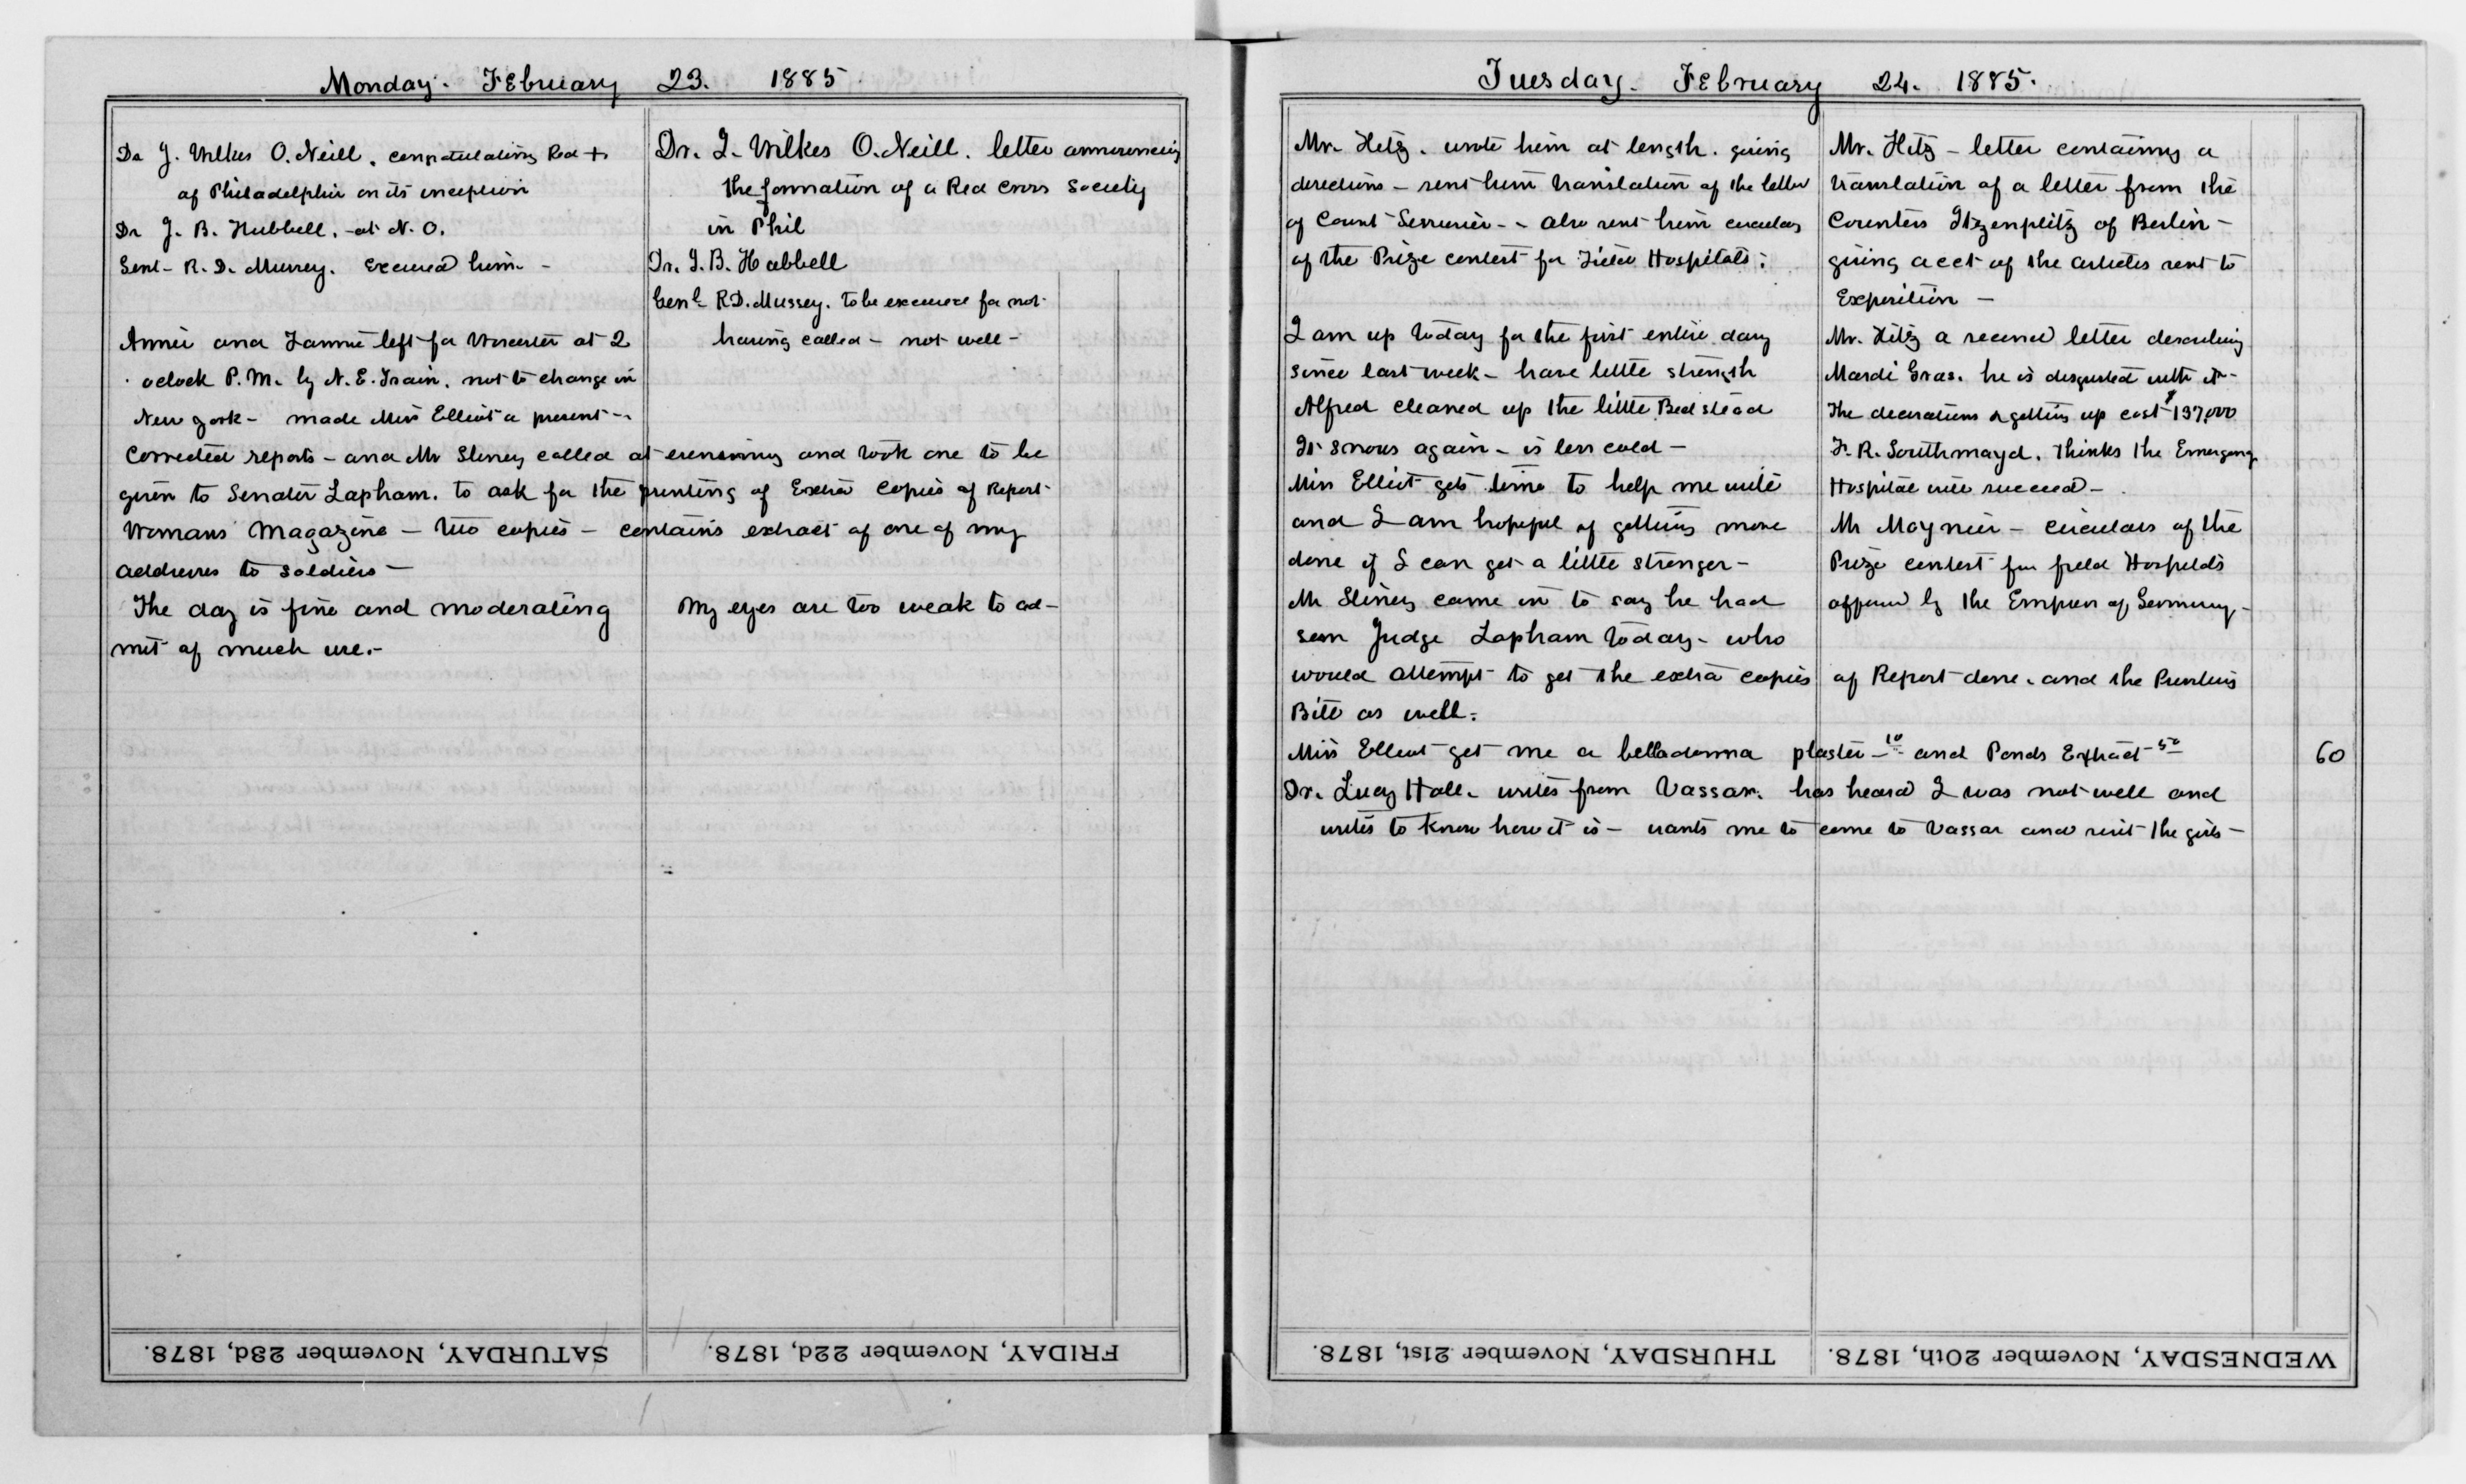 Monday. February 23. 1885
Dr J. Wilkes O.Neill. congratulating Red +
of Philadelphia on its inception
Dr J. B. Hubbell. - at N. O.
Genl- R. D. Mussey. Excused him. -
Annie and Fannie left for Worcester at 2
oclock P.M. by N. E. Train. not to change in
New York - made Miss Elliot a present -
Dr. J. Wilkes O.Neill. letter announcing
the formation of a Red Cross Society
in Phil
Dr. J. B. Hubbell
Genl R.D. Mussey. to be excused for not
having called - not well -
Corrected reports - and Mr Sliney called at evening and took one to be
given to Senator Lapham. to ask for the printing of Extra Copies of Report
Womans Magazine - two copies - contains extract of one of my
addresses to soldiers -
The day is fine and moderating My eyes are too weak to ad-
mit of much use. -
SATURDAY, November 23d, 1878.
FRIDAY, November 22d, 1878.
Tuesday. February 24. 1885.
Mr. Hitz. wrote him at length. giving
directions - sent him translation of the letter
of Count Serrurier - - also sent him circulars
of the Prize contest for Field Hospitals.
I am up today for the first entire day
since last week - have little strength
Alfred cleaned up the little Bedstead
It snows again - is less cold -
Miss Elliot gets time to help me write
and I am hopeful of getting more
done if I can get a little stronger -
Mr Sliney came in to say he had
seen Judge Lapham today - who
Mr. Hitz - letter containing a
translation of a letter from the
Countess Itzenplitz of Berlin -
giving acct of the articles sent to
Exposition -
Mr. Hitz a second letter describing
Mardi Gras. he is disgusted with it -
The decorations & getting up cost $197,000
F. R. Southmayd. thinks the Emergency
Hospital will succeed -
Mr Moynier - circulars of the
Prize contest for field Hospitals
offered by the Empress of Germany -
would attempt to get the extra copies of Report done. and the Printing
Bill as well.
Miss Elliot get me a belladonna plaster - 10 and Ponds Extract - 50 60
Dr. Lucy Hall. writes from Vassar. has heard I was not well and
writes to know how it is - wants me to come to Vassar and visit the girls -
THURSDAY, November 21st, 1878.
WEDNESDAY, November 20th, 1878.